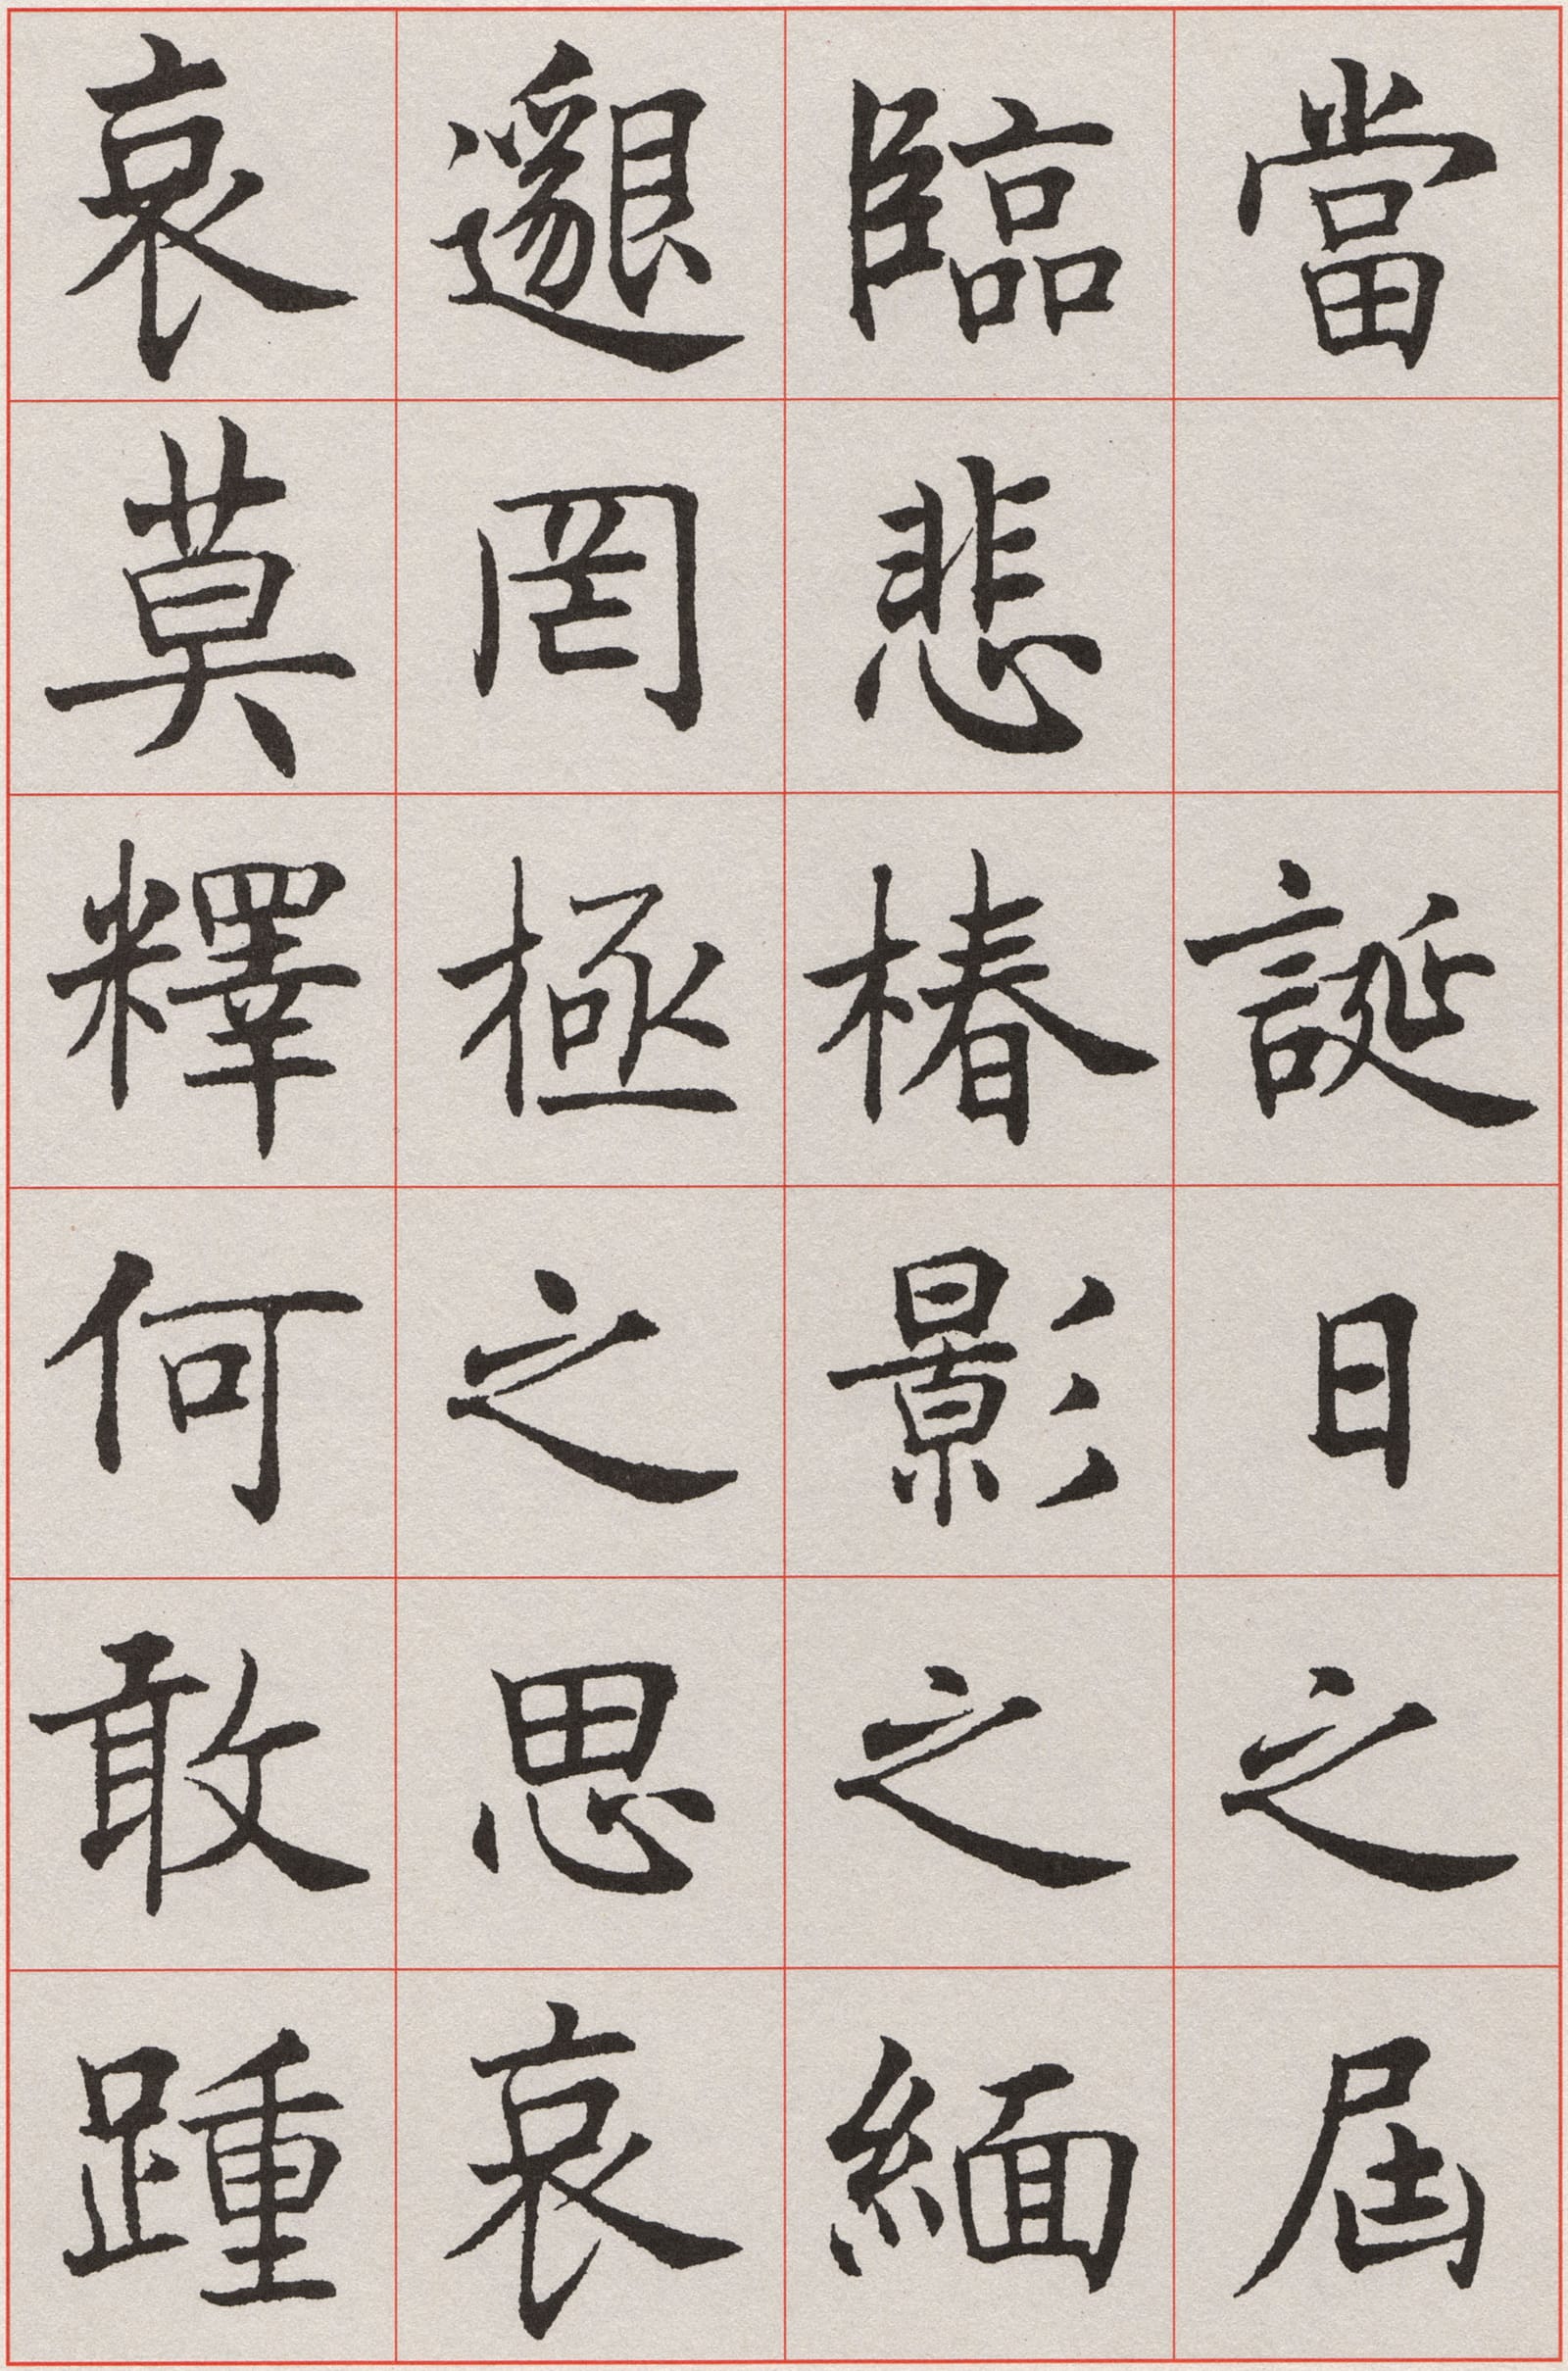 當 誕日之屆
臨悲椿影之緬
邈罔極之思哀
哀莫釋何敢踵